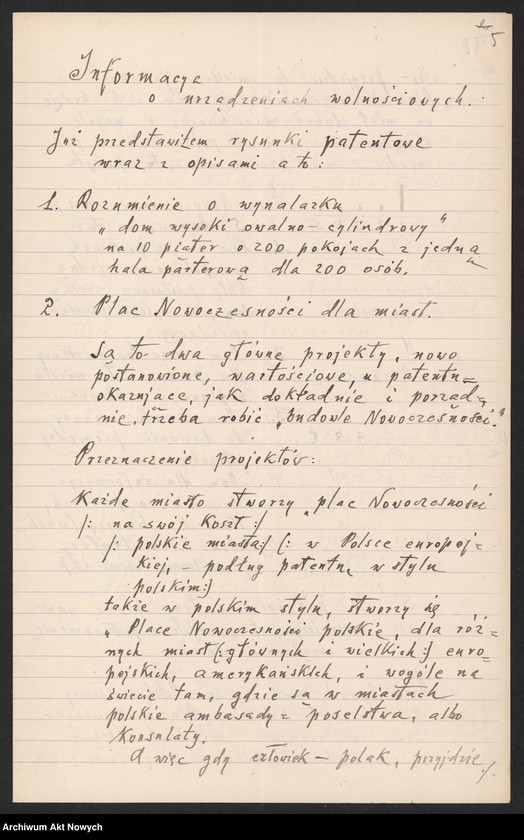 5
Informacye
o urządzeniach wolnościowych.
Już przedstawiłem rysunki patentowe
wraz z opisami a to:
1. Rozumienie o wynalazku
„dom wysoki owalno-cylindrowy"
na 10 piąter o 200 pokojach z jedną
hala parterową dla 200 osób.
2. Plac Nowoczesności dla miast.
Są to dwa główne projekty, nowo
postanowione, wartościowe, u patentu=
okazujące, jak dokładnie i porząd=
nie, trzeba robić „budowle Nowoczesności."
Przeznaczenie projektów:
Każde miasto stworzy „plac Nowoczesności
/: na swój koszt :/
/: polskie miasta:/ (: w Polsce europej=
kiej, – podług patentu, w stylu
polskim:)
także w polskim stylu, stworzy się
„Place Nowoczesności polskie, dla róż=
nych miast (:głównych i wielkich:) euro=
pejskich, amerykańskich, i wogóle na
świecie tam, gdzie są w miastach
polskie ambasady = poselstwa, albo
Konsulaty.
A więc gdy człowiek – polak, przyjdzie
./.
Archiwum Akt Nowych